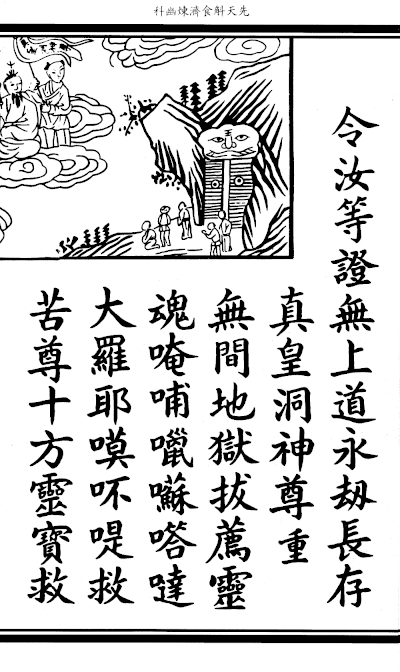 先天斛食濟煉幽科
令汝等證無上道永劫長存
真皇洞神尊重
無間地獄拔薦靈
魂唵哺囌嗒噠
大羅耶嗼吥救
苦尊十方靈寶救